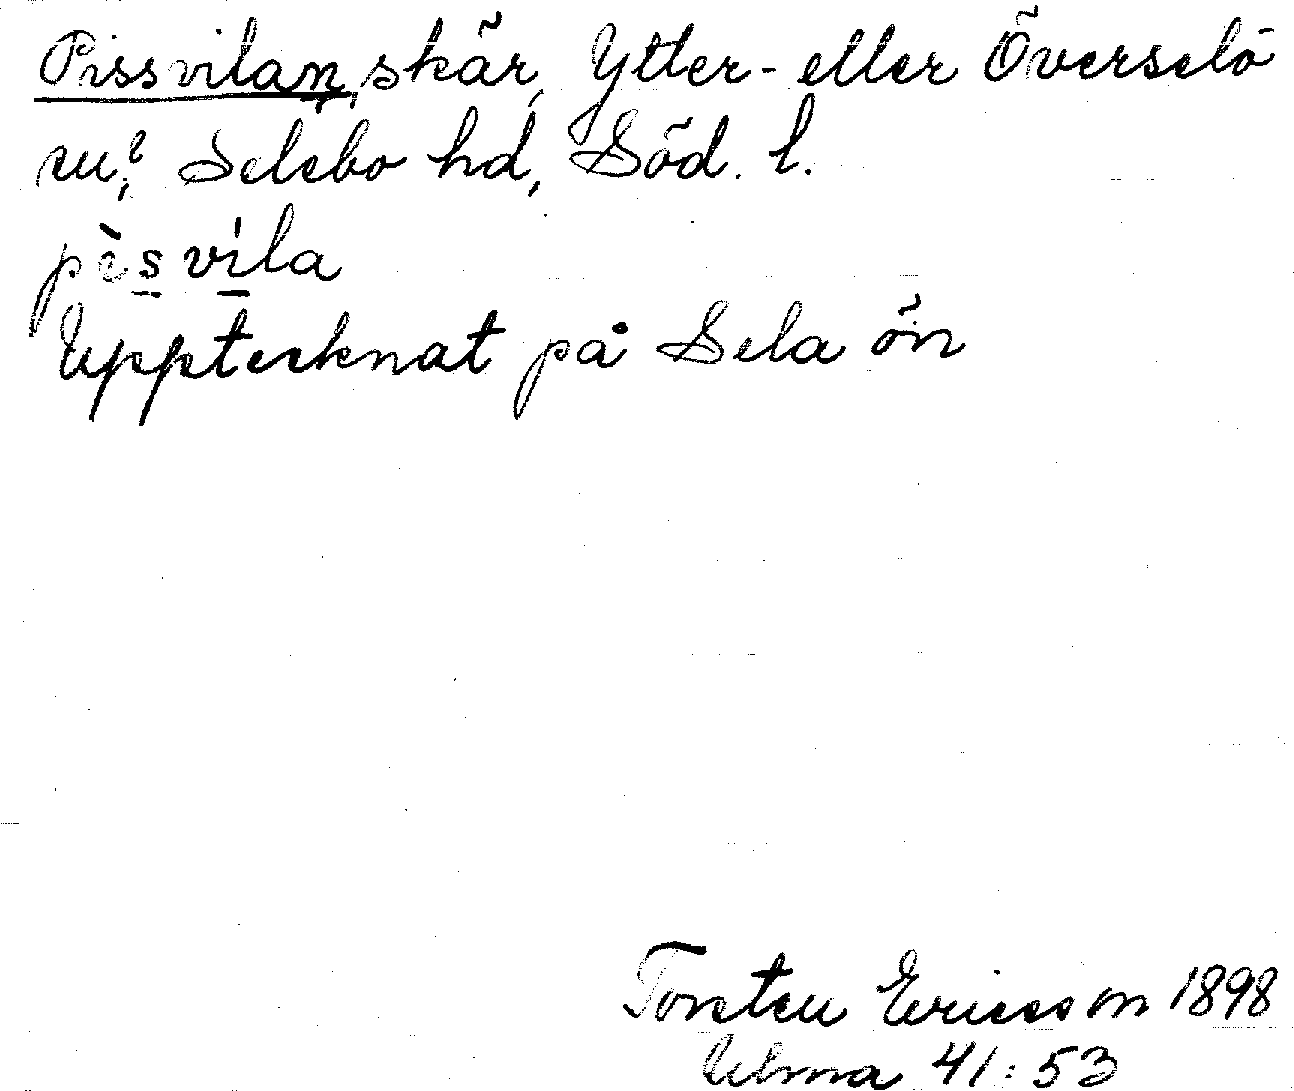 Pissvilan, skär, Ytter- eller Överselö
sn?, Selebo hd, Söd. l.
pèsvíla
Upptecknat på Selaön
Torsten Ericsson 1898
Ulma 41:53